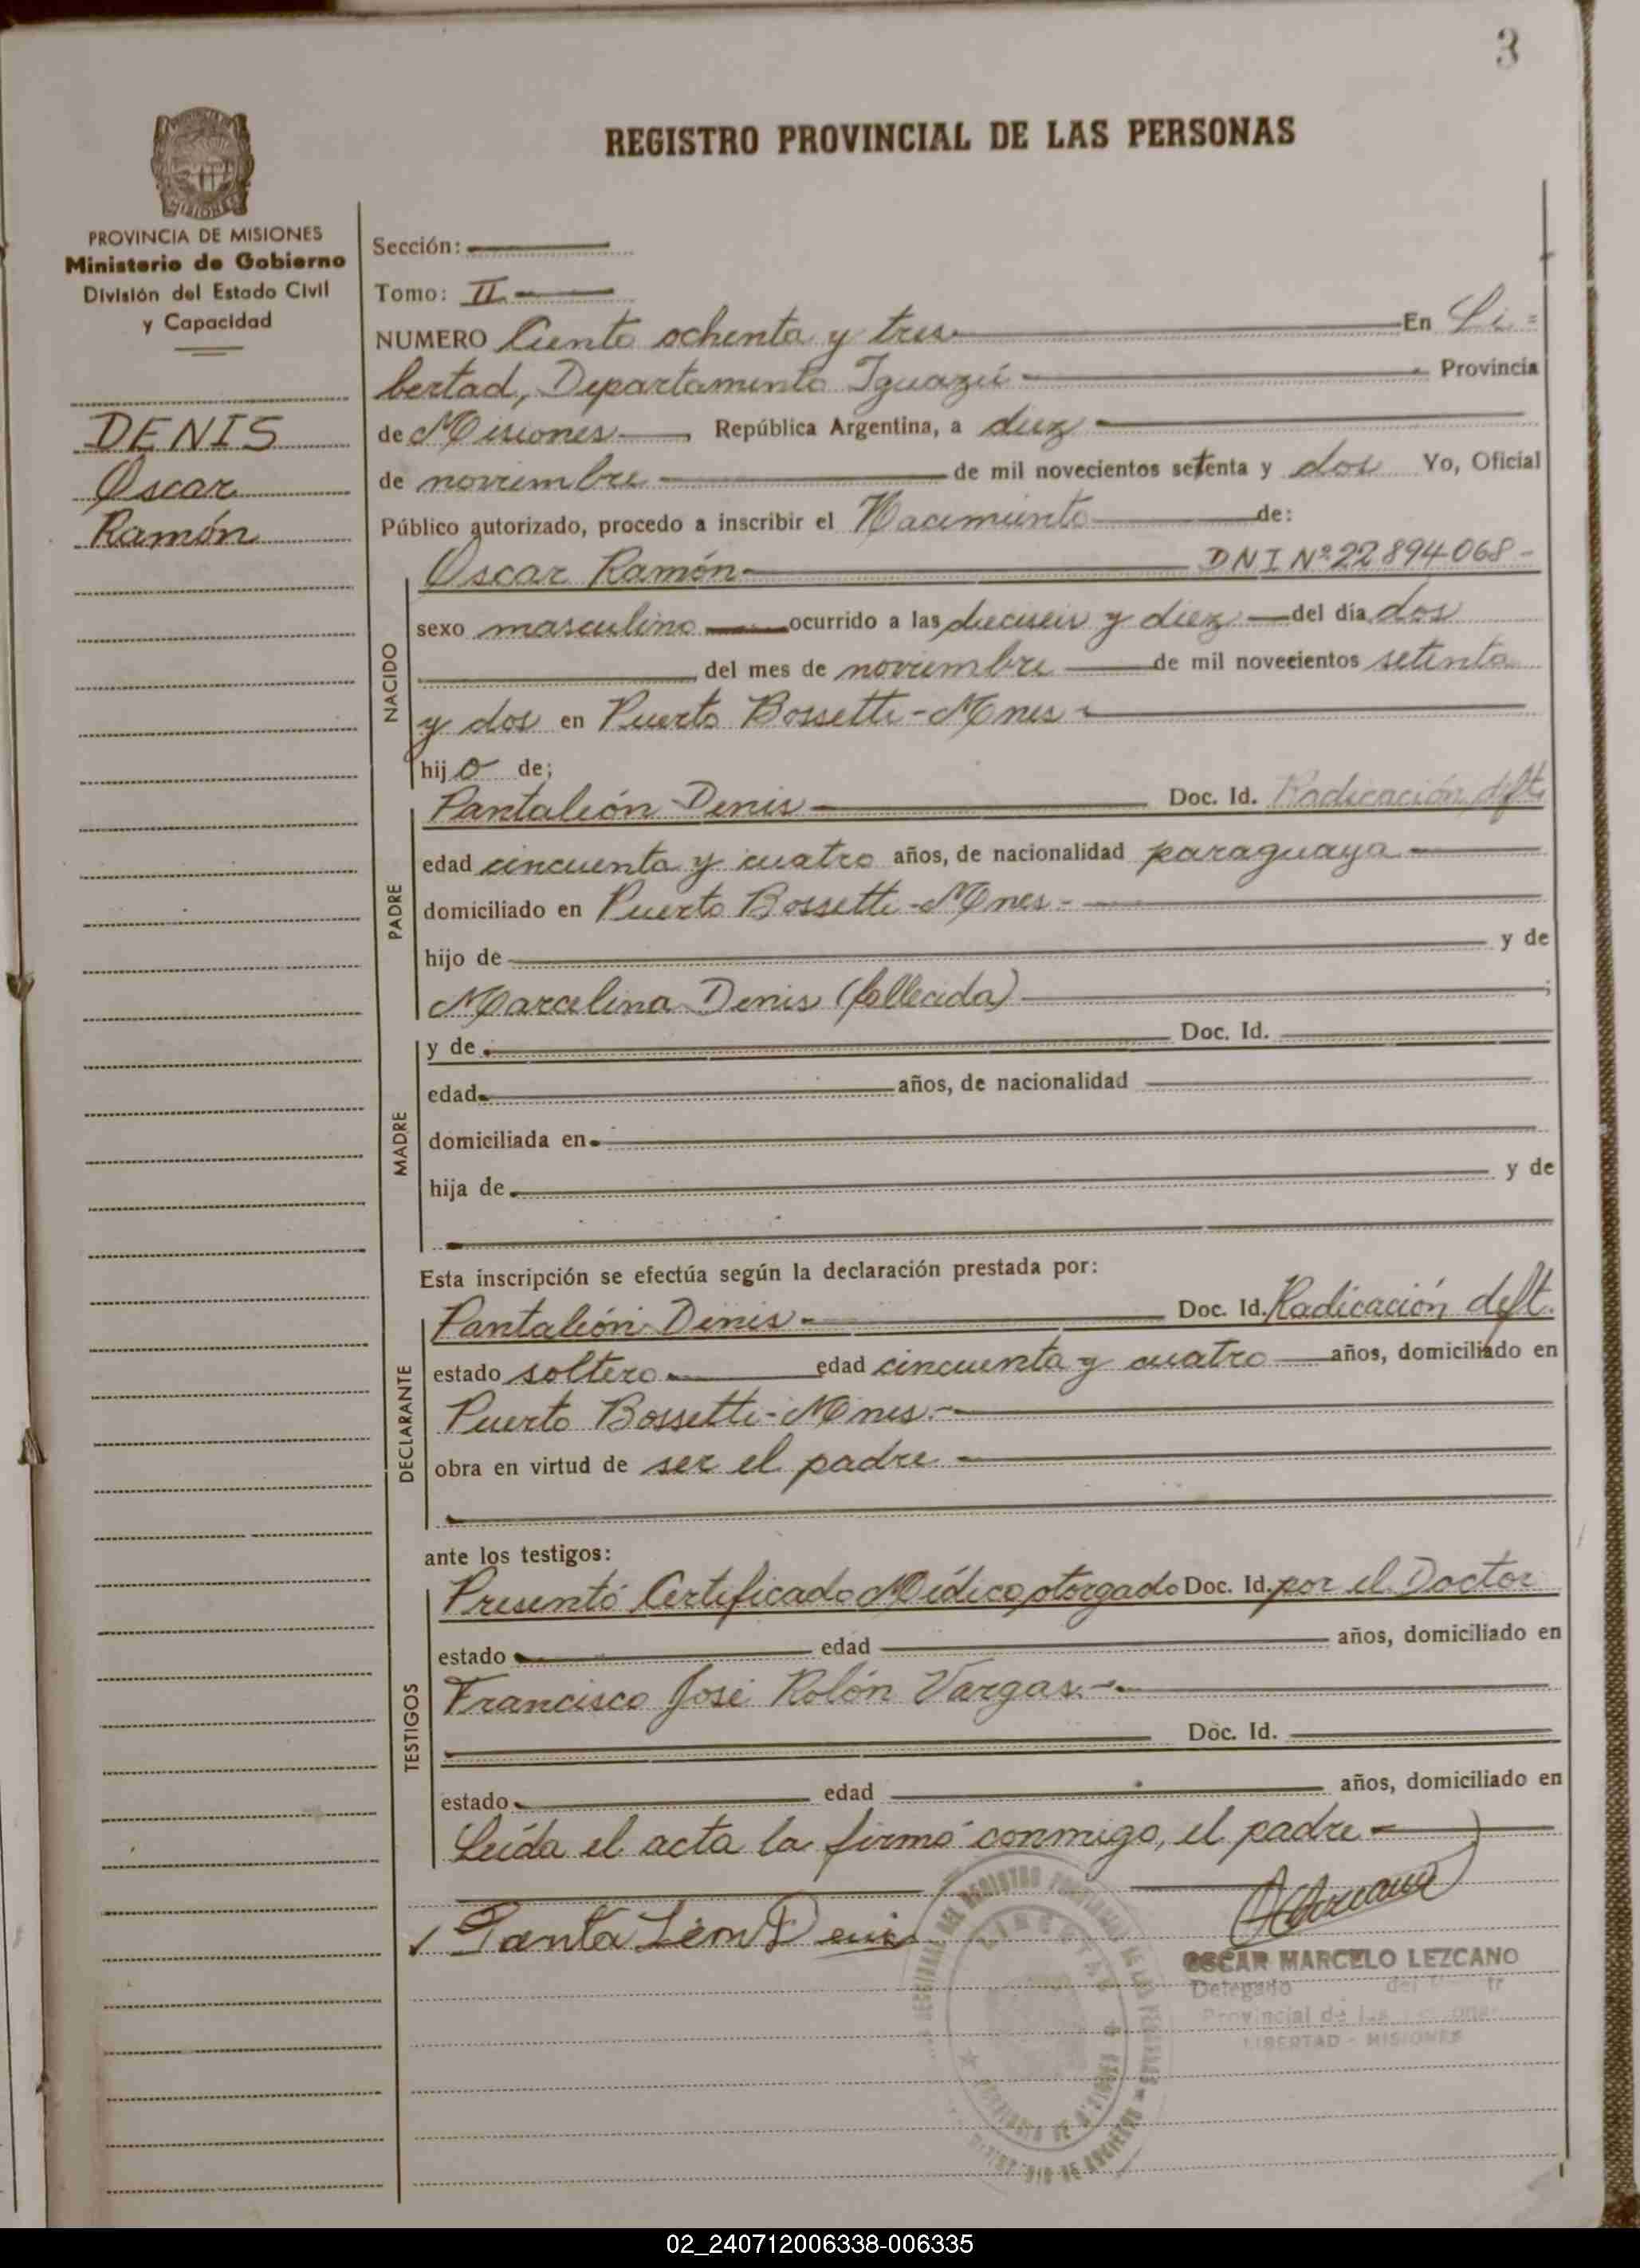 3
REGISTRO PROVINCIAL DE LAS PERSONAS
PROVINCIA DE MISIONES
Ministerio de Gobierno
División del Estado Civil
y Capacidad
DENIS
Oscar
Ramón
Sección:
Tomo: II
NUMERO Ciento ochenta y tres En Li=
bertad, Departamento Iguazú Provincia
de Misiones República Argentina, a diez
de noviembre de mil novecientos setenta y dos Yo, Oficial
Público autorizado, procedo a inscribir el Nacimiento de:
Oscar Ramón DNI Nº 22894068-
NACIDO
sexo masculino ocurrido a las dieciseis y diez del día dos
del mes de noviembre de mil novecientos setenta
y dos en Puerto Bossetti-Mnes
hijo de;
PADRE
Pantaleón Denis Doc. Id. Radicación dft.
edad cincuenta y cuatro años, de nacionalidad paraguaya
domiciliado en Puerto Bossetti-Mnes-
hijo de y de
Marcelina Denis (fallecida) ;
MADRE
y de Doc. Id.
edad años, de nacionalidad
domiciliada en
hija de y de
Esta inscripción se efectúa según la declaración prestada por:
DECLARANTE
Pantaleón Denis Doc. Id. Radicación dft.
estado soltero edad cincuenta y cuatro años, domiciliado en
Puerto Bossetti-Mnes.-
obra en virtud de ser el padre
ante los testigos:
TESTIGOS
Presentó Certificado Médico otorgado Doc. Id. por el Doctor
estado edad años, domiciliado en
Francisco José Rolón Vargas.-
Doc. Id.
estado edad años, domiciliado en
Leída el acta la firmó conmigo, el padre
Panta Leon Denis
OSCAR MARCELO LEZCANO
Delegado del
Provincial de las
LIBERTAD - MISIONES
02_240712006338-006335